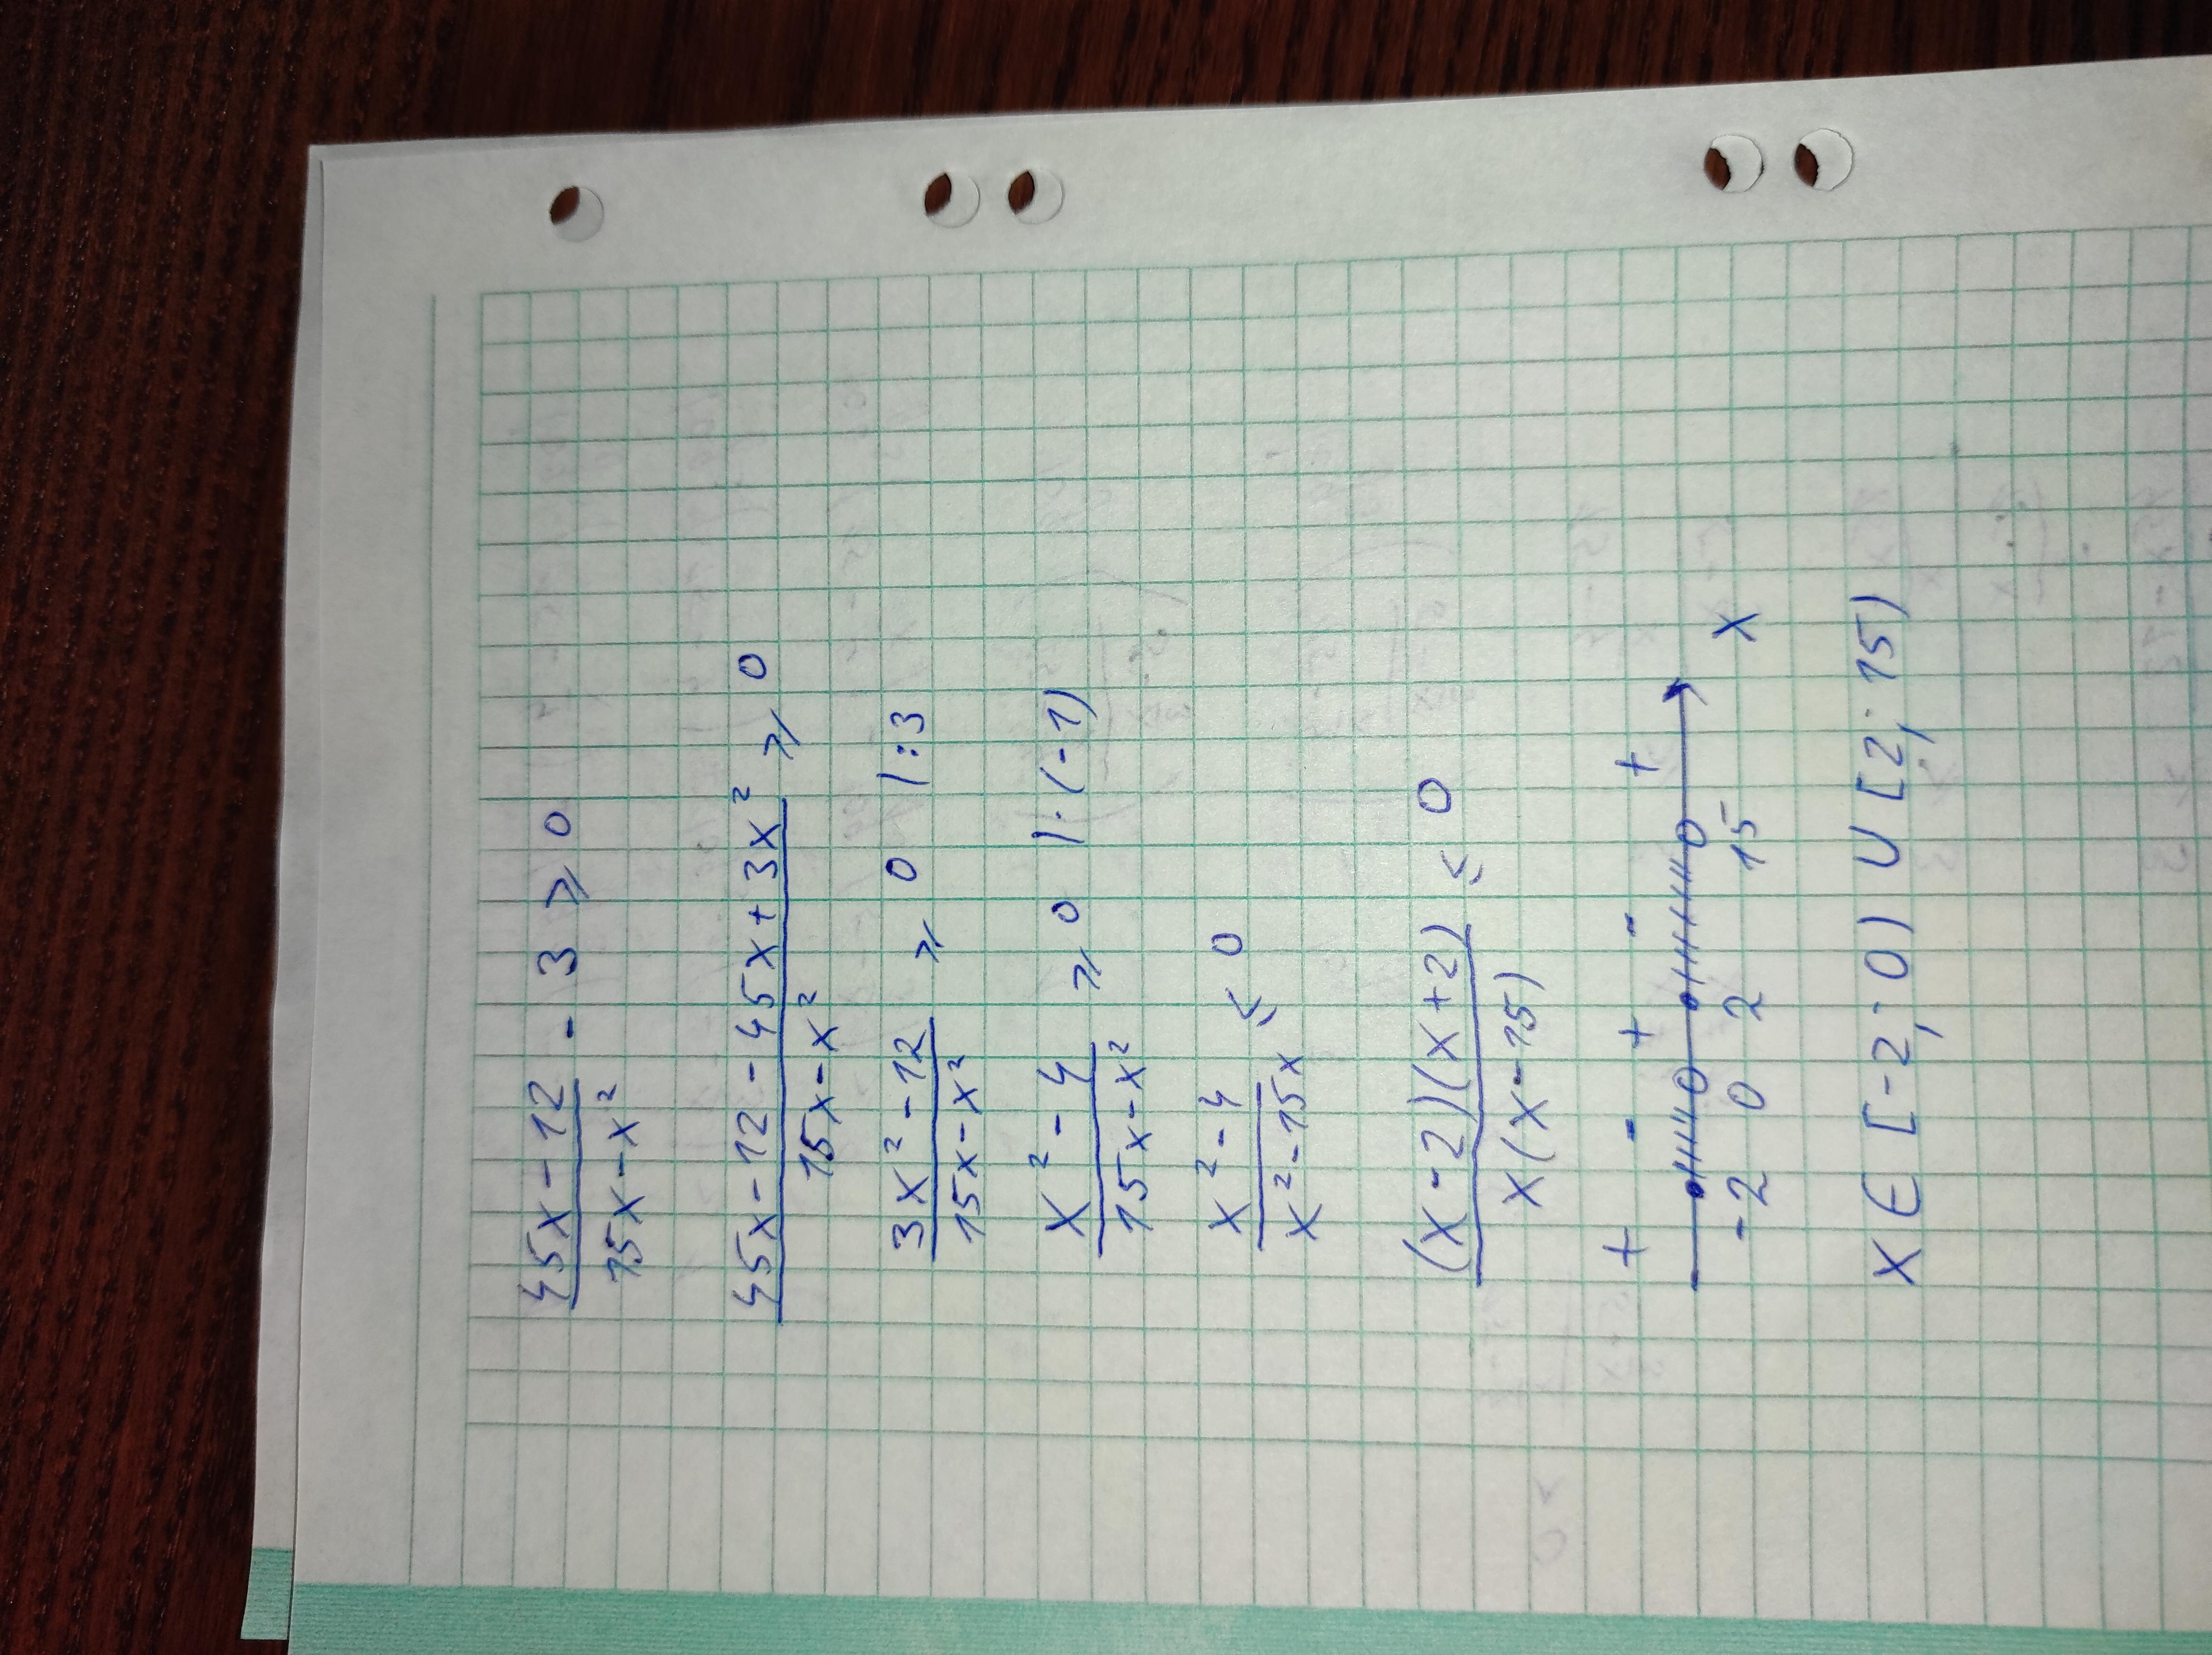 (45x-12)/(15x-x²) - 3 ⩾ 0
(45x-12-45x+3x²)/(15x-x²) ⩾ 0
(3x²-12)/(15x-x²) ⩾ 0 |:3
(x²-4)/(15x-x²) ⩾ 0 |·(-1)
(x²-4)/(x²-15x) ⩽ 0
((x-2)(x+2))/(x(x-15)) ⩽ 0
+ - + - +
-2 0 2 15 x
x ∈ [-2; 0) ∪ [2; 15)